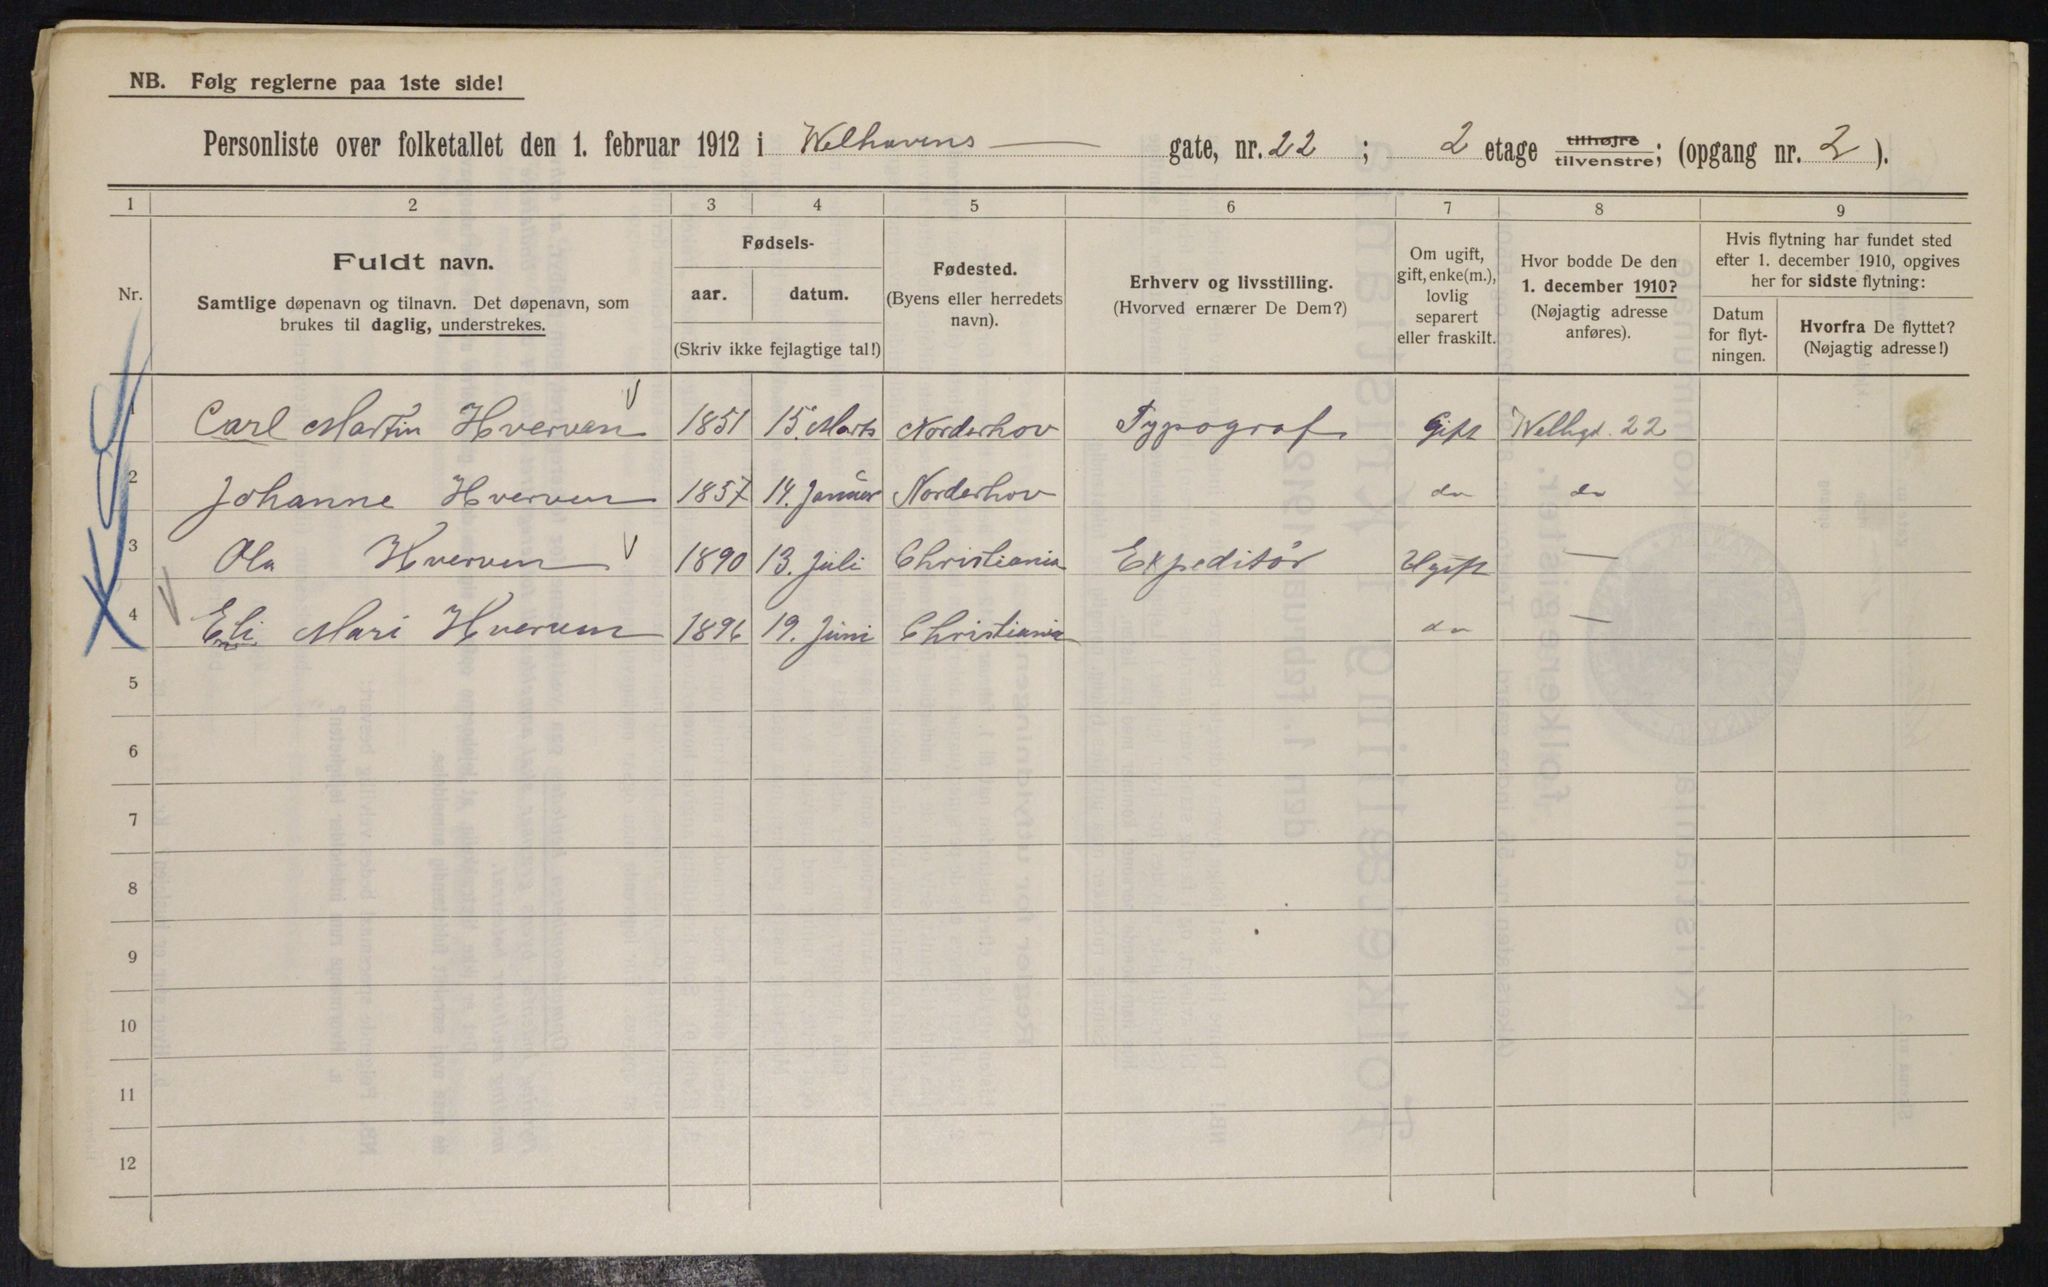 NB. Følg reglerne paa 1ste side!
Personliste over folketallet den 1. februar 1912 i Welhavens gate, nr. 22 ; 2 etage tilhøjre tilvenstre; (opgang nr. 2 ).
1 2 3 4 5 6 7 8 9
Nr.
Fuldt navn.
Samtlige døpenavn og tilnavn. Det døpenavn, som
brukes til daglig, understrekes.
Fødsels-
aar. datum.
(Skriv ikke fejlagtige tal!)
Fødested.
(Byens eller herredets
navn).
Erhverv og livsstilling.
(Hvorved ernærer De Dem?)
Om ugift,
gift, enke(m.),
lovlig
separert
eller fraskilt.
Hvor bodde De den
1. december 1910?
(Nøjagtig adresse
anføres).
Hvis flytning har fundet sted
efter 1. december 1910, opgives
her for sidste flytning:
Datum
for flyt-
ningen.
Hvorfra De flyttet?
(Nøjagtig adresse!)
1 Carl Martin Hverven 1851 15. Marts Norderhov Typograf Gift Welhgd. 22
2 Johanne Hverven 1857 14. Januar Norderhov do do
3 Ola Hverven 1890 13. Juli Christiania Expeditør Ugift —
4 Eli Mari Hverven 1896 19. Juni Christiania do —
5
6
7
8
9
10
11
12